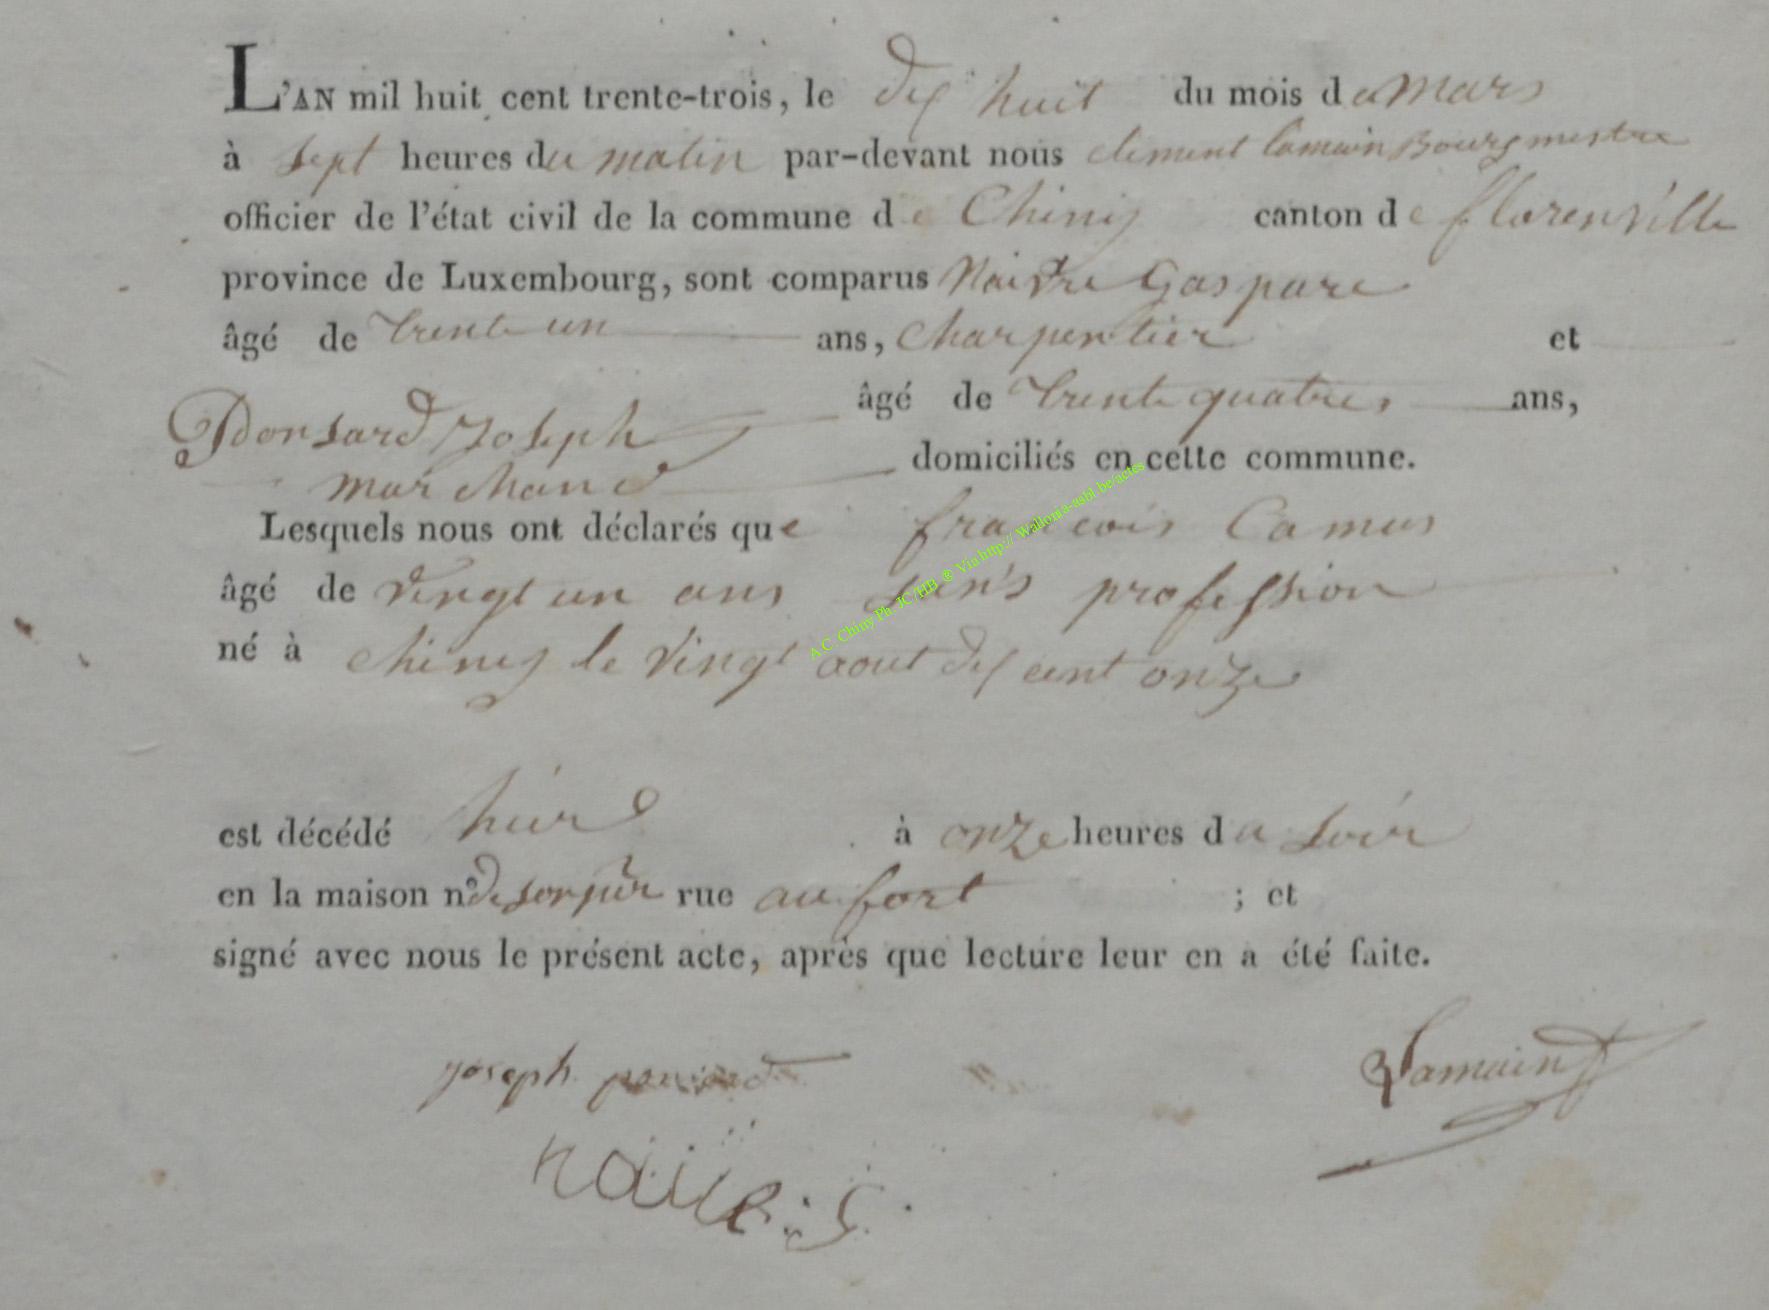 L'AN mil huit cent trente-trois, le dix huit du mois de Mars
à sept heures du matin par-devant nous clement Lamain Bourgmestre
officier de l'état civil de la commune de Chiny canton de florenville
province de Luxembourg, sont comparus Naivre Gaspare
âgé de trente un ans, charpentier et
Ponsard Joseph âgé de trente quatres ans,
marchand domiciliés en cette commune.
Lesquels nous ont déclarés que francois Camus
âgé de vingt un ans sans profession
né à chiny le vingt aout dix cent onze
A.C. Chiny Ph. JC/HB ® Via http:// Wallonia-asbl be/actes
est décédé hier à onze heures du soir
en la maison n° de son pèr rue au fort ; et
signé avec nous le présent acte, après que lecture leur en a été faite.
joseph Lamain